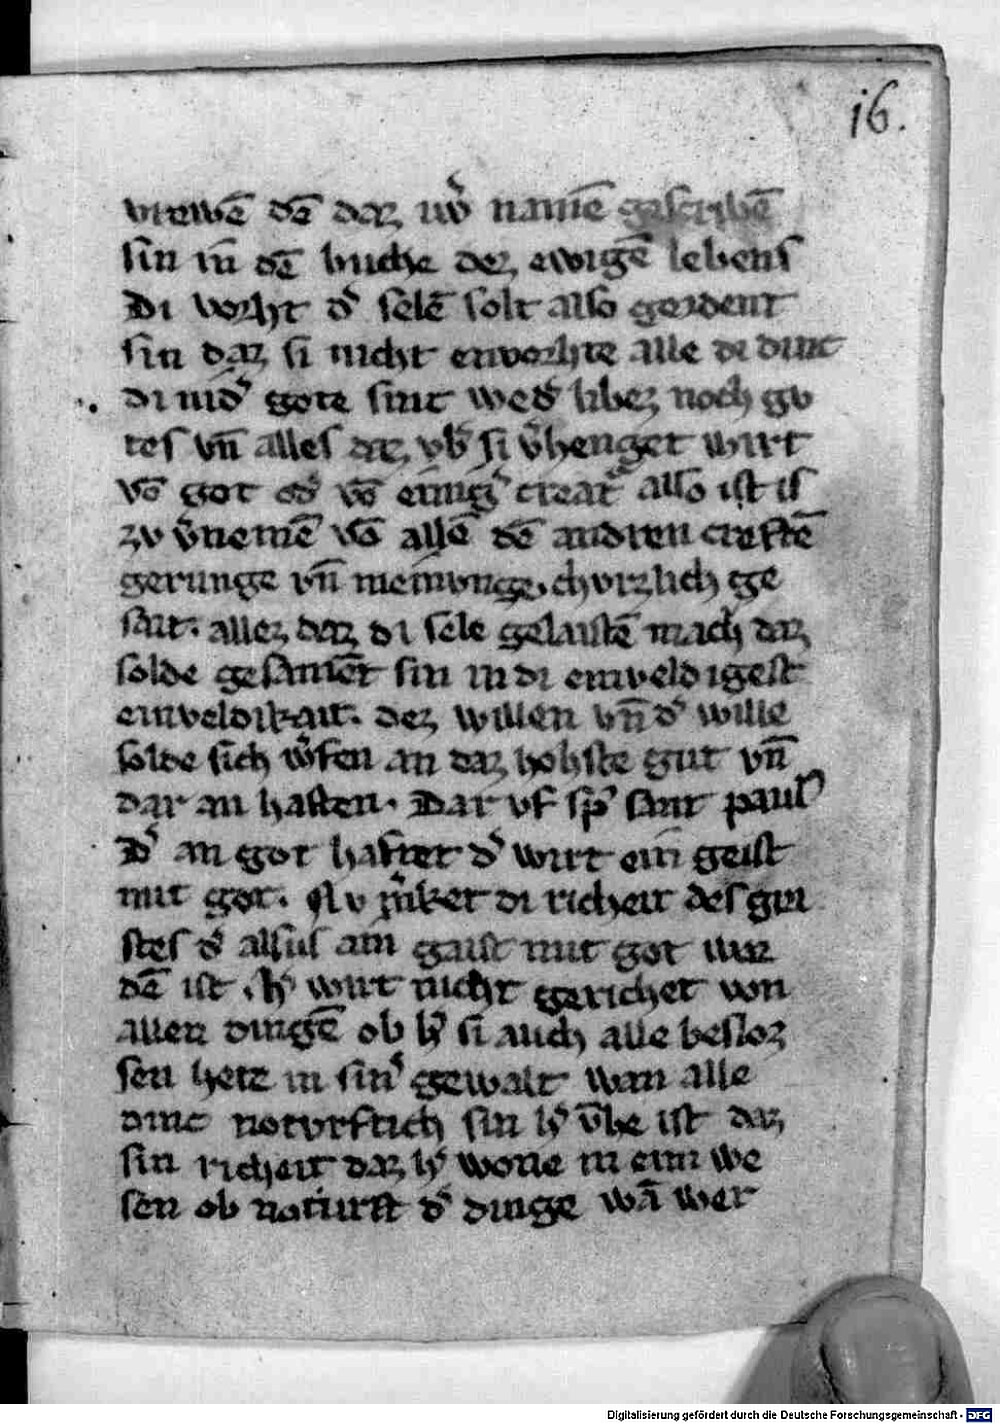 i6.
vrewē dē daz uwͦ namē gescribē
sin in dē buche dez ewigē lebens
Di vorht dˀ selē solt also geordent
sin daz si nicht envorhte alle di dinc
di widˀ gote sint wedˀ libez noch gv
tes vn̄ alles daz vbˀ si vˀhenget wirt
vō got odˀ vō einigˀ creatˀ also ist is
zv vˀnemē vō allē dē andren creftē
gerunge vn̄ meinvnge. chvrzlich ge
sait. allez daz di sele gelaistē mach daz
solde gesament sin in di einveldigest
einveldikait. dez willen vn̄ dˀ wille
solde sich wˀfen an daz hohste gut vn̄
dar an haften. Dar vf spˀ sant paulˀ
Dˀ an got haftet dˀ wirt ein geist
mit got. Nv mˀket di richeit des gei
stes dˀ alsus ain gaist mit got wor
dē ist. hˀ wirt nicht gerichet von
allen dingē ob hˀ si auch alle besloz
sen hete in sinˀ gewalt wan alle
dinc noturftich sin hˀ vˀhe ist daz
sin richeit daz hˀ wone in eim we
sen ob noturft dˀ dinge wā wer
Digitalisierung gefördert durch die Deutsche Forschungsgemeinschaft - DFG